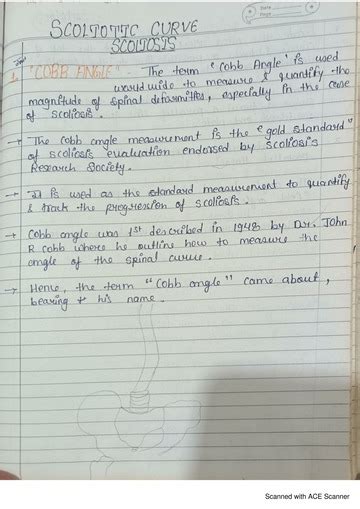 Date
Page
SCOLIOTIC CURVE
SCOLIOSIS
1. "COBB ANGLE" - The term 'Cobb Angle' is used
would wide to measure & quantify the
magnitude of spinal deformities, especially in the case
of scoliosis.
→ The Cobb angle measurement is the "gold standard"
of scoliosis evaluation endorsed by scoliosis
Research Society.
→ It is used as the standard measurement to quantify
& track the progression of scoliosis.
→ Cobb angle was 1st described in 1948 by Dr. John
R cobb where he outline how to measure the
angle of the spinal curve.
→ Hence, the term "Cobb angle" came about,
bearing + his name.
Scanned with ACE Scanner